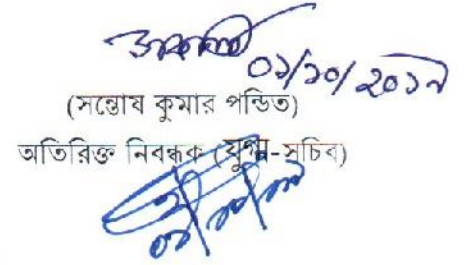 ০১/১০/২০১৭
(সন্তোষ কুমার পন্ডিত)
অতিরিক্ত নিবন্ধক (যুগ্ম-সচিব)